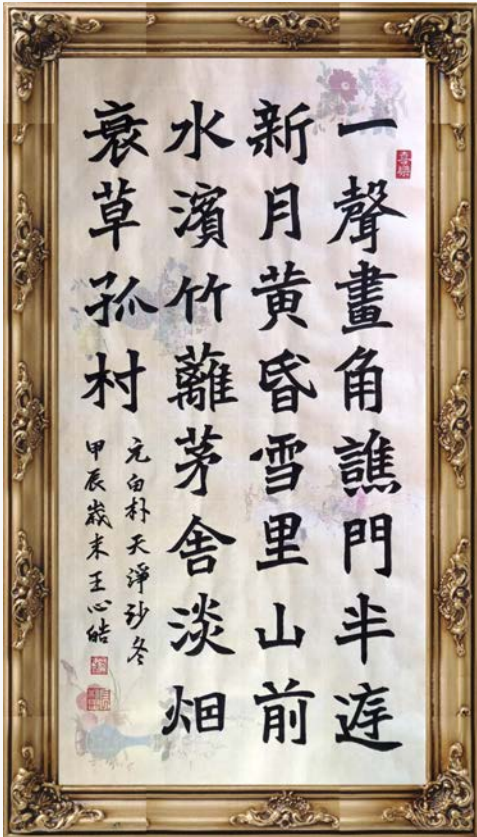 一聲畫角譙門半庭
新月黄昏雪里山前
水濱竹蘺茅舍淡畑
衰草孤村
元白朴天淨沙冬
甲辰歲末王心皓